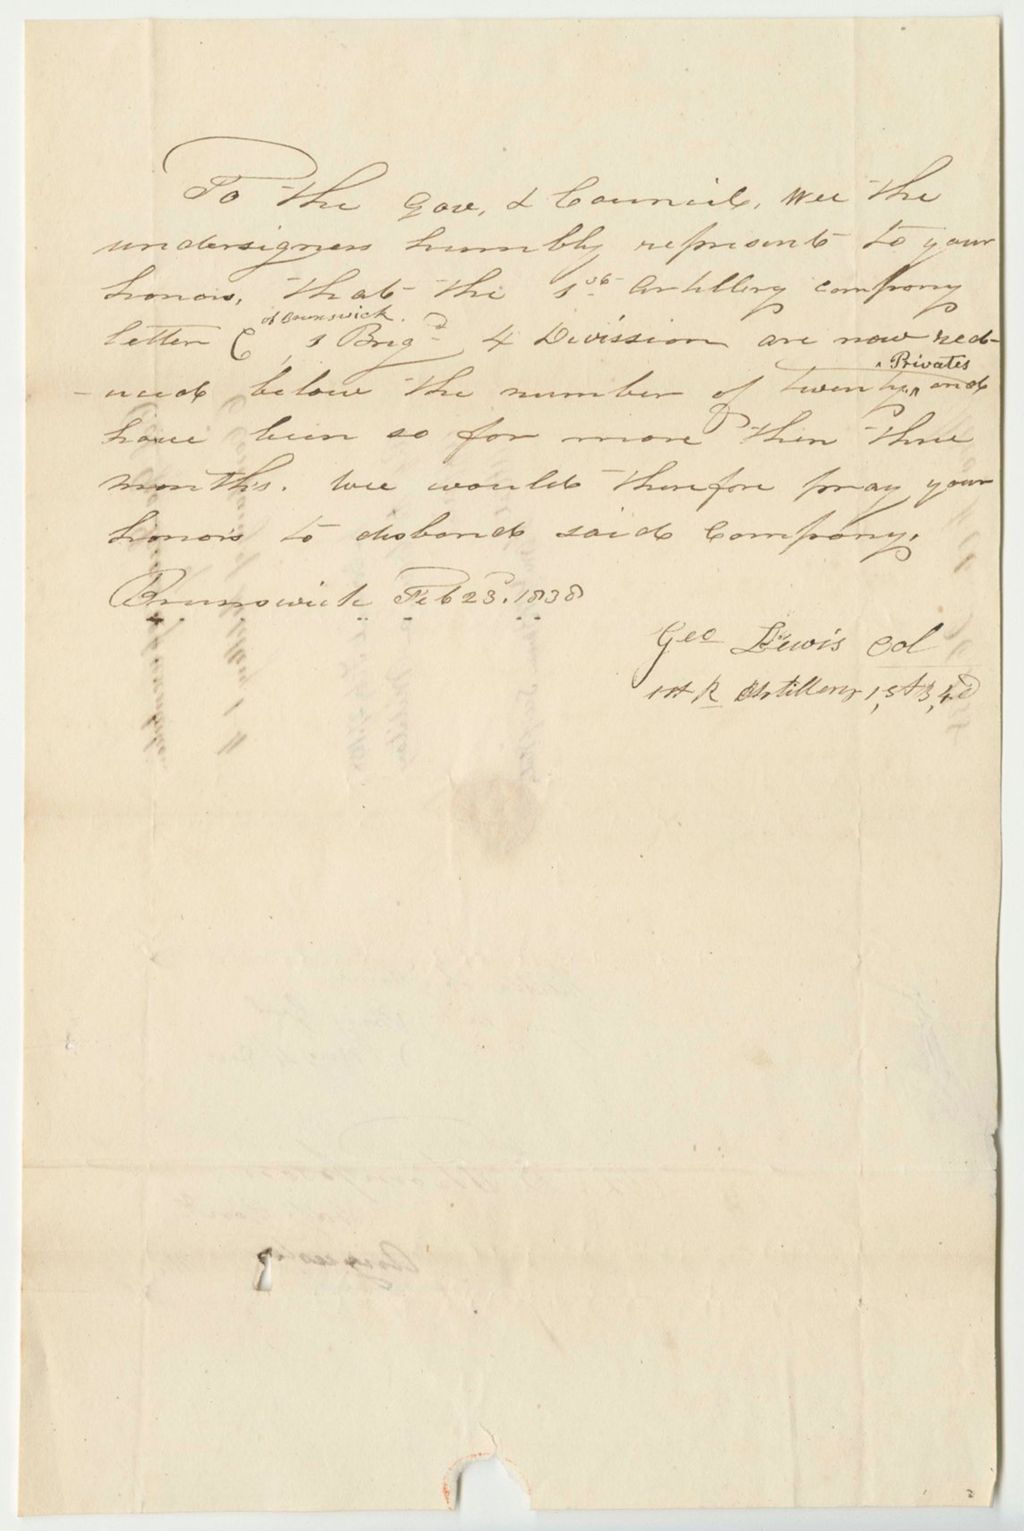 To the Gov, & Council, Wee the
undersigners humbly represent to your
honors, that the 1st Artillery company
letter C of Brunswick. 1 Brigd 4 Division are now red-
-uced below the number of twenty Privates and
have been so for more then three
months. Wee would therefore pray your
honors to disband said Company.
Brunswick Feb 23d. 1838
Geo Lewis Col
1st R Artillery 1,st B, 4 D